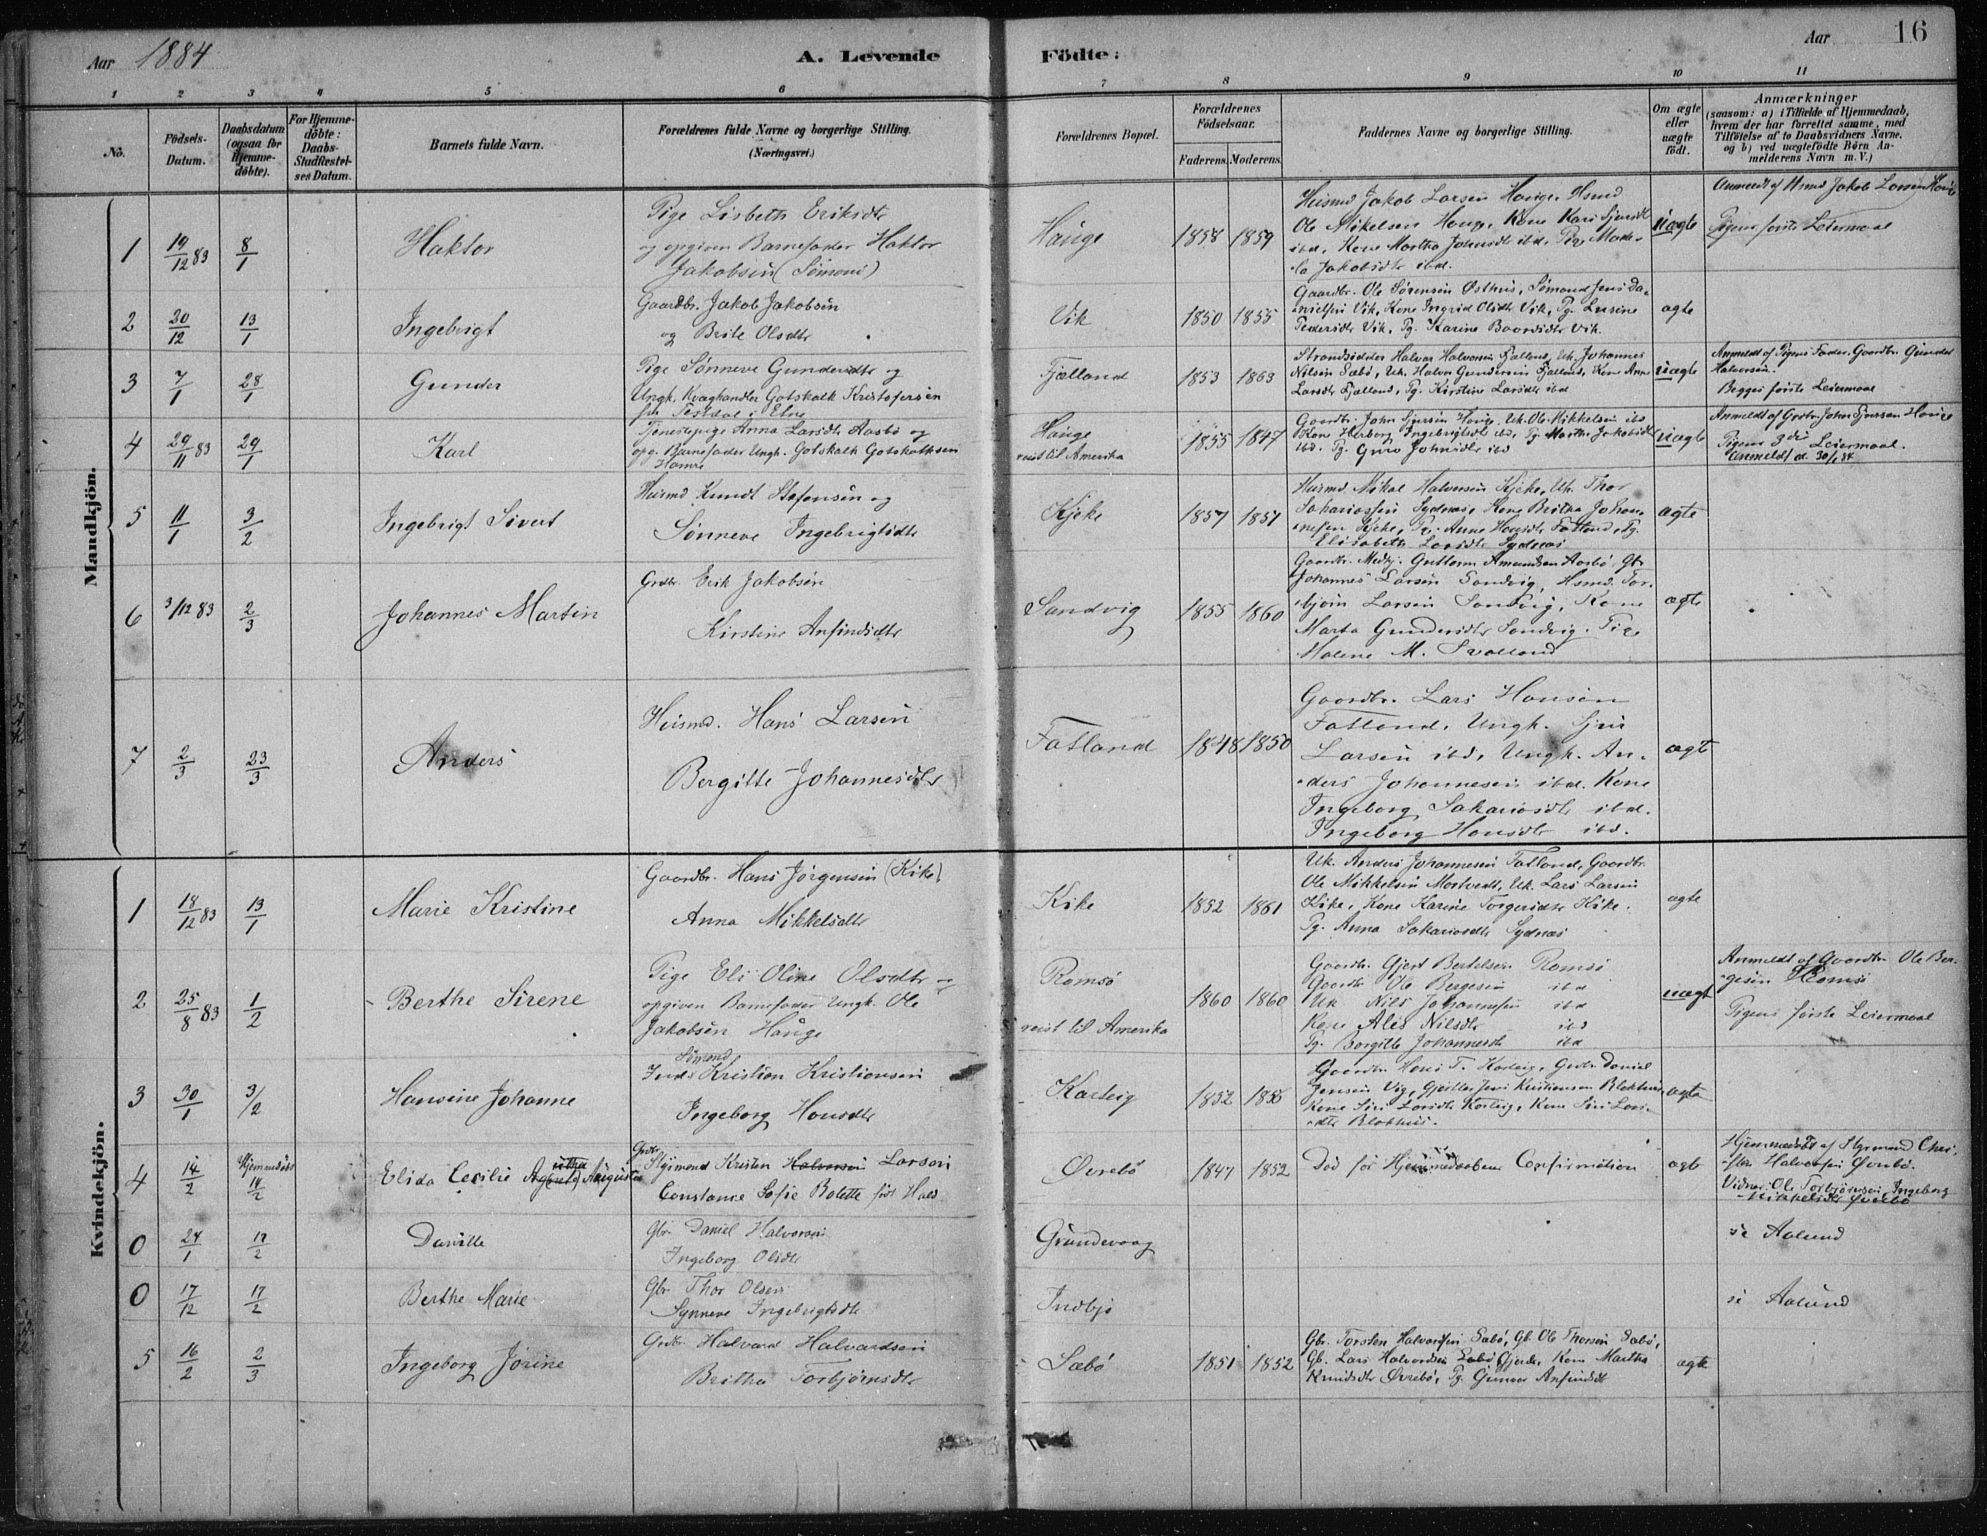 Aar 1884
A. Levende
Födte:
Aar
16
1 2 3 4 5 6 7 8 9 10 11
No.
Födsels-
Datum.
Daabsdatum
(ogsaa for
Hjemme-
döbte).
For Hjemme-
döbte:
Daabs-
Stadfæstel-
ses Datum.
Barnets fulde Navn.
Forældrenes fulde Navne og borgerlige Stilling.
(Næringsvei.)
Forældrenes Bopæl.
Forældrenes
Födselsaar.
Faderens. Moderens.
Faddernes Navne og borgerlige Stilling.
Om ægte
eller
uægte
födt.
Anmærkninger
(saasom: a) i Tilfælde af Hjemmedaab,
hvem der har forrettet samme, med
Tilföielse af to Daabsvidners Navne,
og b) ved uægtefödte Börn An-
melderens Navn m. V.)
Mandkjön.
1 19/12 83 8/1 Haktor
Pige Lisbeth Eriksdtr
og opgiven Barnefader Haktor
Jakobsen (Sømand)
Hauge 1858 1859
Husmd Jakob Larsen Hauge, Hsmd
Ole Mikelsen Hauge, Kone Kari Sjursdt
ibd, Kone Martha Johnsdtr ibd, Pige Made-
la Jakobsdtr ibd.
uægte
Anmeldt af Hsmd Jakob Larsen Hauge
Pigens første Leiermaal
2 30/12 13/1 Ingebrigt
Gaardbr. Jakob Jakobsen
og Brite Olsdtr
Vik 1850 1855
Gaardbr. Ole Sørensen Østhus, Sømand Jens Da-
nielsen Vik, Kone Ingrid Olsdtr Vik, Pg. Lusine
Pedersdtr Vik, Pg. Karine Baardsdtr Vik.
ægte
3 7/1 28/1 Gunder
Pige Sønneve Gundersdtr og
Ungk. Kvæghandler Gotskalk Kristofersen
fra Testdal i Etne
Fjælland 1853 1863
Strandsidder Halvar Halvorsen Fjælland, Uk. Johannes
Nilsen Sæbø, Uk. Halvor Gundersen Fjælland, Kone Anna
Larsdtr Fjælland, Pg. Kirstine Larsdtr ibd
uægte
Anmeldt af Pigens Fader Gaardbr. Gunder
Halvorsen.
Begges første Leiermaal
4 29/11 83 29/1 Karl
Tjenestepige Anna Larsdtr Aasbø og
opg. Barnefader Ungk. Gotskalk Gotskalksen
Hamre
Hauge
reist til Amerika
1855 1847
Gaardbr. John Sjursen Hauge, Uk. Ole Mikkelsen ibd
Kone Herborg Ingebrigtsdt ibd, Pg. Martha Jakobsdt
ibd. Pg. Guro Johnsdtr ibd
uægte
Anmeldt af Grdbr John Sjursen Hauge
Pigens 3die Leiermaal.
Anmeldt d. 30/1 84
5 11/1 3/2 Ingebrigt Sivert
Husmd Knudt Stefensen og
Sønneve Ingebrigtsdtr
Kjeke 1857 1857
Husmd Mikal Halvorsen Kjeke, Uk. Thor
Sakariassen Sydnæs, Kone Britha Johan-
nesen Kjeke, Pg. Anne Hansdt Fatland, Pg.
Elisabeth Larsdtr Sydnæs
ægte
6 3/12 83 2/3 Johannes Martin
Grdbr. Erik Jakobsen
Kirstine Anfindsdtr
Sandvig 1855 1860
Gaardbr. Medhj. Guttorm Amundsen Aasbø, Gbr
Johannes Larsen Sandvig, Hsmd. Tor-
bjørn Larsen Sandvig, Kone
Marta Gundersdtr Sandvig. Pige
Malene M. Svalland
ægte
7 2/3 23/3 Anders
Husmd. Hans Larsen
Bergitte Johannesdtr
Fatland 1848 1850
Gaardbr. Lars Hansen
Fatland, Ungk. Sjur
Larsen ibd, Ungk. An-
ders Johannesen ibd. Kone
Ingeborg Sakariasdtr ibd.
Ingeborg Hansdtr ibd.
ægt
Kvindekjön.
1 18/12 83 13/1 Marie Kristine
Gaardbr. Hans Jørgensen (Kike)
Anna Mikkelsdtr
Kike 1852 1861
Uk. Anders Johannesen Fatland, Gaardbr.
Ole Mikkelsen Mortvedt, Uk. Lars Larsen
Kike, Kone Karine Torgersdtr Kike.
Pg. Anna Sakariasdtr Sydnæs
ægte
2 25/8 83 1/2 Berthe Sirene
Pige Eli Oline Olsdtr og
opgiven Barnefader Ungk. Ole
Jakobsen Hauge
Romsø
reist til Amerika
1860 1860
Gaardbr. Gjert Bertelsen Romsø
Gaardbr Ole Bergesen ibd
Uk Nils Johannesen ibd
Kone Alis Nilsdtr ibd
Pg. Borgitte Johannesdt ibd
uægt
Anmeldt af Gaardbr. Ole Ber-
gesen Romsø
Pigens første Leiermaal
3 30/1 3/2 Hansine Johanne
Sømand
Inds. Kristian Kristiansen
Ingeborg Hansdtr
Karteig 1852 1855
Gaardbr Hans T. Karteig, Grdbr Daniel
Jensen Vig, Jens Kristiansen Blokhus,
Kone Siri Larsdtr Karteig, Kone Siri Lars-
dtr Blokhus.
ægte
4 14/2 Hjemmedøbt 14/2 Elida Cecilie Agathe Augusta
Grdbr
Styrmand Kristen Halvorsen Larsen
Constanse Sofie Bolette født Hals
Øvrebø 1847 1852
Død før Hjemmedaabens Confirmation
ægte
Hjemmedøbt af Styrmand Chri-
sten Halvorsen Øvrebø.
Vidner: Ole Torbjørnsen, Ingeborg
Mikkelsdtr Øvrebø
0 24/1 17/2 Danille
Gbr. Daniel Halvorsen
Ingeborg Olsdtr
Grundevaag
se Aalund
0 17/12 17/2 Berthe Marie
Gbr. Thor Olsen
Synneve Ingebrigtsdtr
Indbjo
se Aalund
5 16/2 2/3 Ingeborg Jorine
Grdbr. Halvard Halvardsen
Britha Torbjørnsdtr
Sæbø 1851 1852
Gbr. Torsten Halvorsen Sæbø, Gb. Ole Thorsen Sæbø,
Gb. Lars Halvordsen Sæbø Gjerde, Kone Martha
Knudsdtr Øvrebø, Pg. Gunnar Anfindsdt
ægte